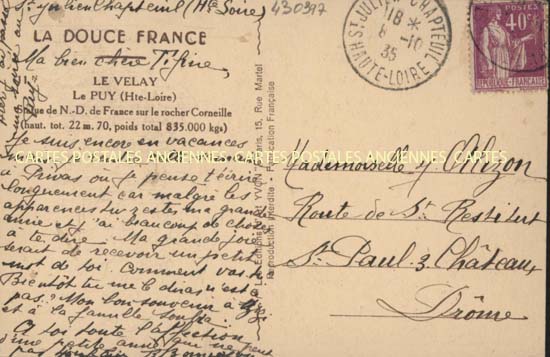 St Julien Chapteuil (Hte Loire)
430397
LA DOUCE FRANCE
Ma bien chère Tifine,
LE VELAY
Le PUY (Hte-Loire)
Statue de N.-D. de France sur le rocher Corneille
(haut. tot. 22 m. 70, poids total 835.000 kgs)
Je suis encore en vacances
à Privas où je pense t'écrire
longuement car malgré les
apparences tu es ma grande
amie et j'ai beaucoup de choses
à te dire. Ma grande joie
serait de recevoir un petit
mot de toi. Comment vas-tu
Bientôt tu me le diras n'est-ce
pas? Mon bon souvenir à
et à la famille
À toi toute l'affection
d'une petite amie que ne peut
pas
YVON Paris, 15, Rue Martel
Reproduction Interdite Fabrication Française
ST JULIEN CHAPTEUIL
18 *
8 -10
35
HAUTE-LOIRE
POSTES
40c
REPUBLIQUE FRANÇAISE
CARTES POSTALES ANCIENNES CARTES POSTALES ANCIENNES CARTES
Mademoiselle
Route de St Restitut
St Paul 3 Château
Drôme